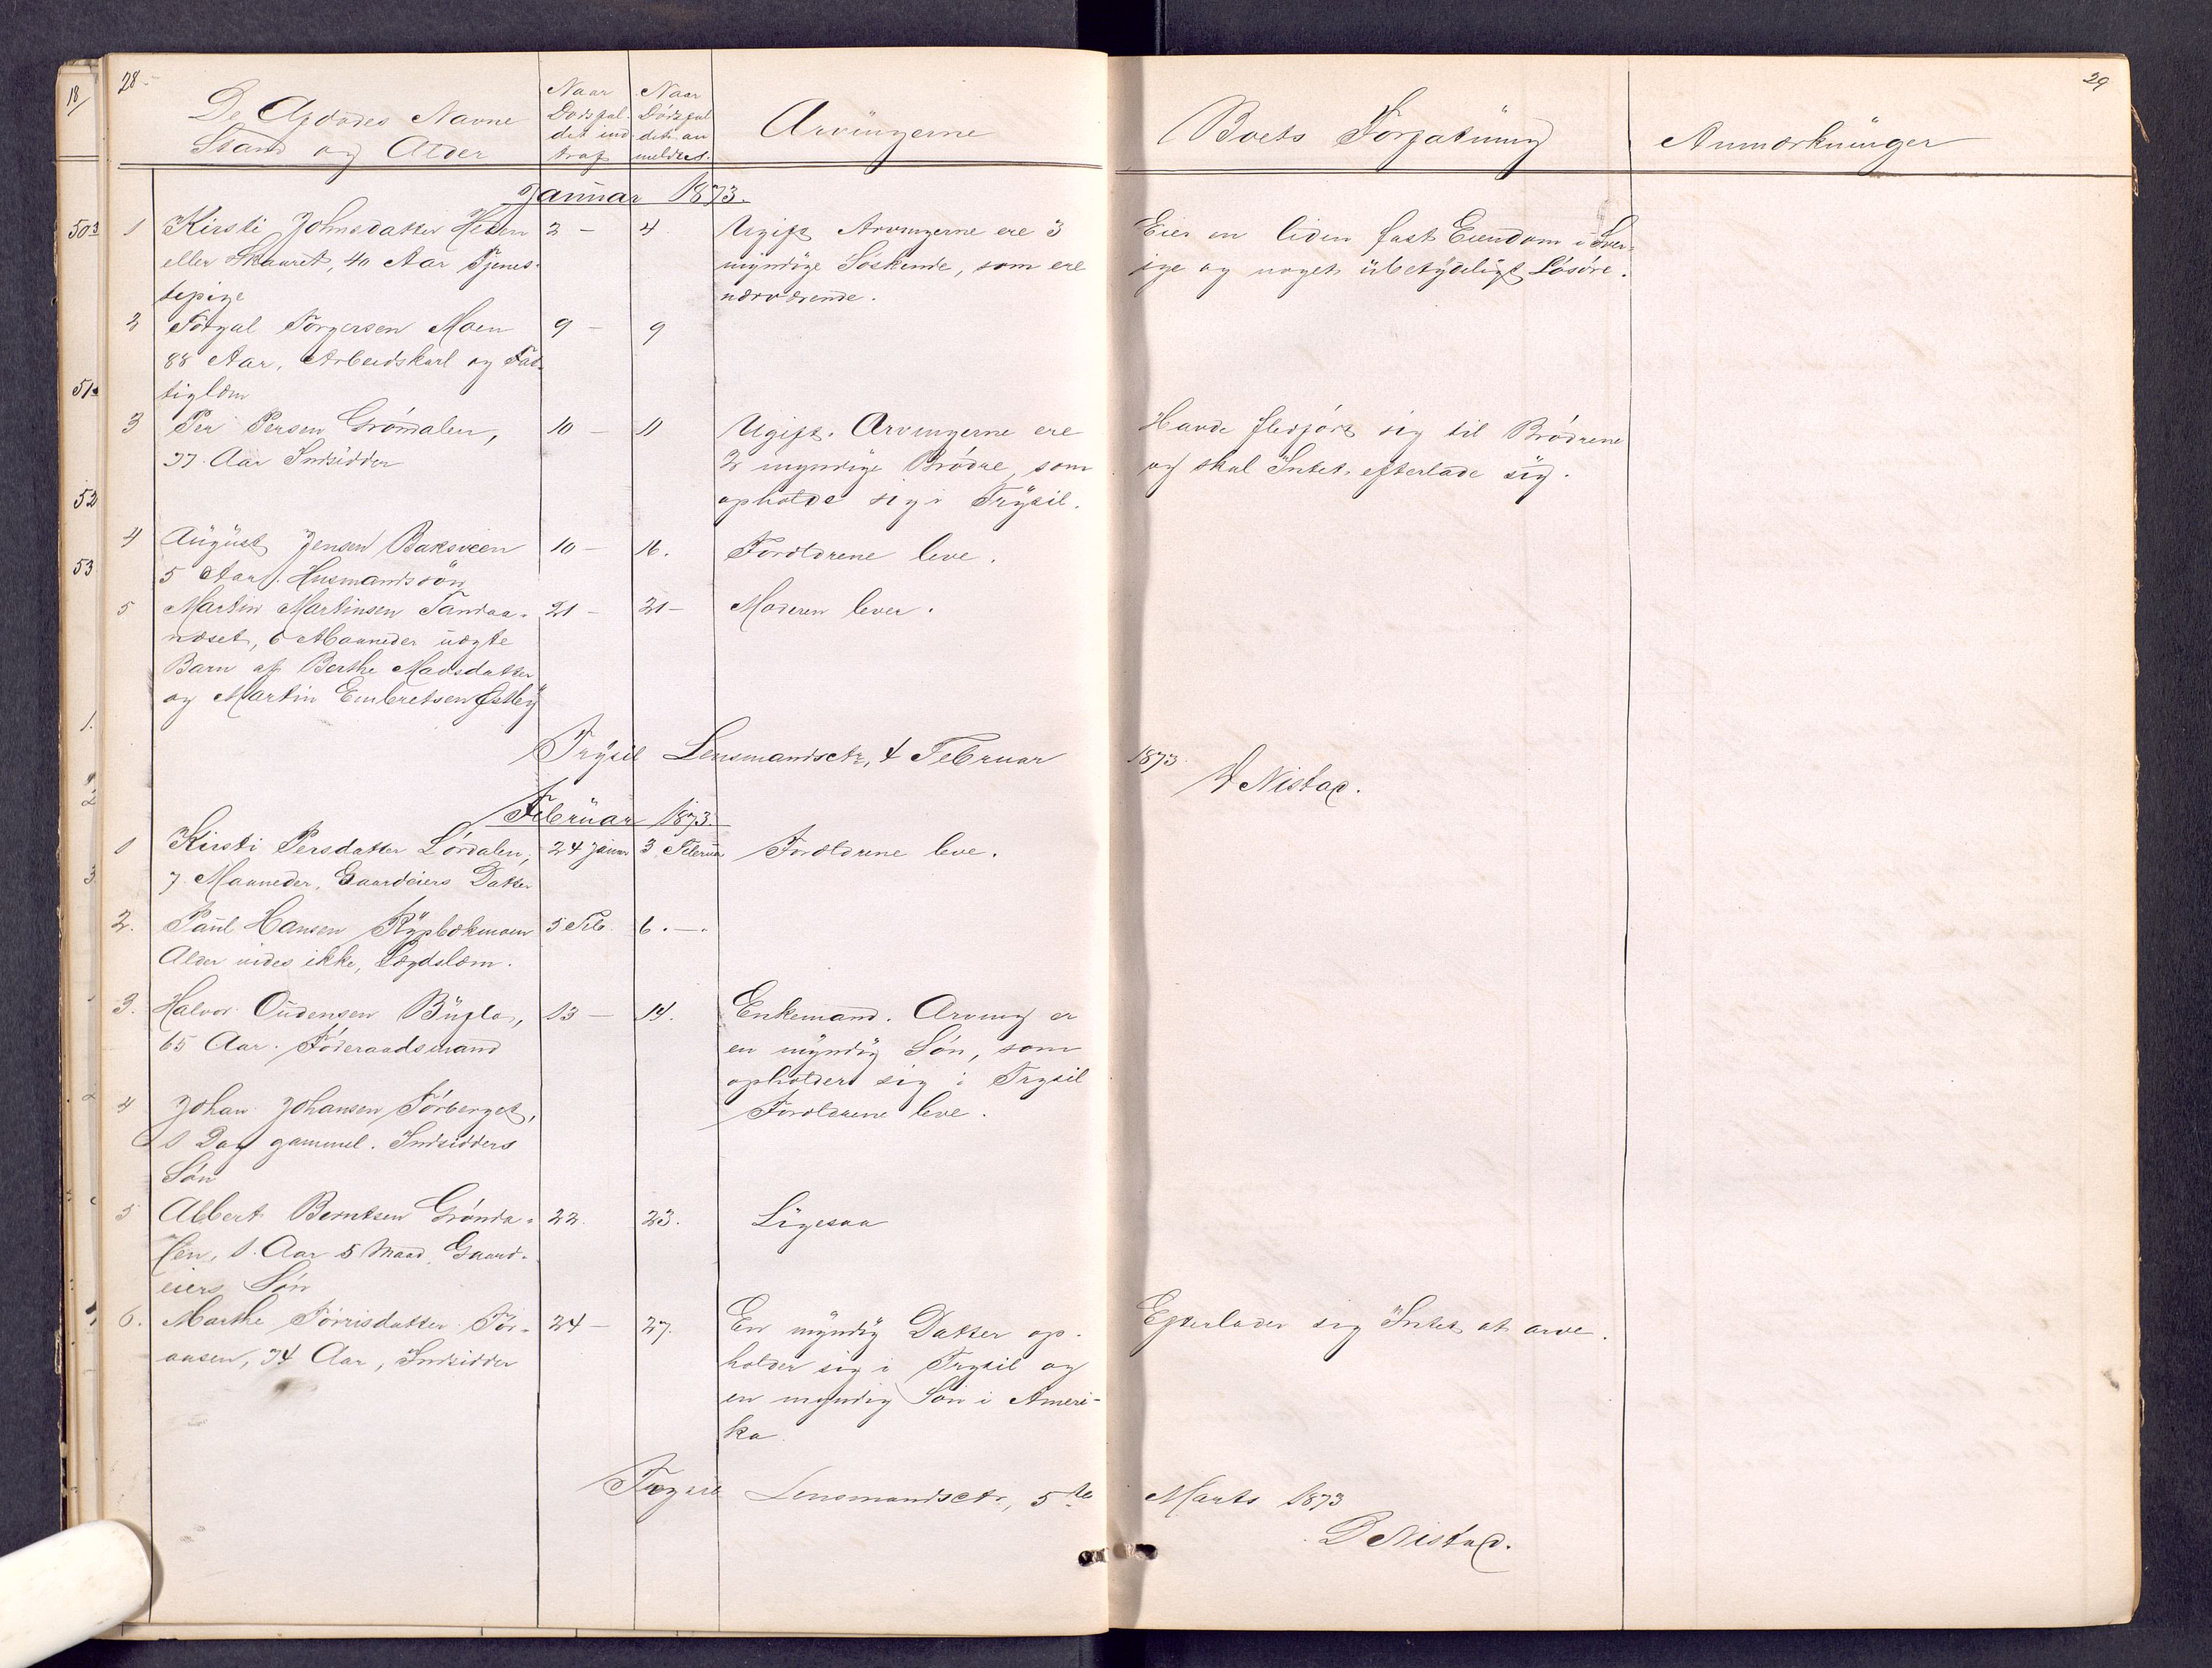 28
De Afdødes Navne
Stand og Alder
Naar
Dødsfal-
det ind
traf
Naar
Dødsfal
det an
meldtes.
Arvingerne
Boets Forfatning
Anmærkninger
29
Januar 1873.
1 Kirsti Johnsdatter Heden 2 – 4. Ugift Arvingerne ere 3 Eier en liden fast Eiendom i Sver-
eller Skauret, 40 Aar Tjenes- myndige Søskende, som ere ige og noget übetydeligt Løsøre.
tepige nærværende.
2 Torgal Torgersen Moen 9 – 9
88 Aar, Arbeidskarl og Fat-
tiglem
3 Per Persen Grøndalen, 10 – 11 Ugift. Arvingerne ere Havde fledført sig til Brødrene
77 Aar Indsidder 2 myndige Brødre, som og skal Intet efterlade sig.
opholde sig i Trysil.
4 August Jensen Baksveen 10 – 16. Forældrene leve.
5 Aar. Husmandssøn
5 Martin Martinsen Tandaa- 21 – 21 – Moderen lever.
næset, 6 Maaneder uægte
Barn af Berthe Madsdatter
og Martin Embretsen Østby
Trysil Lensmandsctr, 4 Februar 1873
D Nistad.
Februar 1873.
1 Kirsti Persdatter Lørdalen, 24 Januar 3 Februar Forældrene leve.
7 Maaneder, Gaardeiers Datter
2. Paul Hansen Rypbækmoen 5 Feb. 6. –.
Alder vides ikke, Lægdslem.
3. Halvor Oudensen Bugla, 13 – 14. Enkemand. Arving er
65 Aar. Føderaadsmand en myndig Søn, som
opholder sig i Trysil
4 Johan Johansen Tørberget, Forældrene leve.
1 Dag gammel. Indsidders
Søn
5 Albert Berntsen Grønda- 22. 23. Ligesaa
len, 1 Aar 5 Maad. Gaard-
eiers Søn
6. Marthe Tørrisdatter Tør- 24 – 27. En myndig Datter op- Efterlader sig Intet at arve.
aasen, 74 Aar, Indsidder holder sig i Trysil og
en myndig Søn i Ameri-
ka
Trysil Lensmandsctr, 5te Marts 1873
D Nistad.